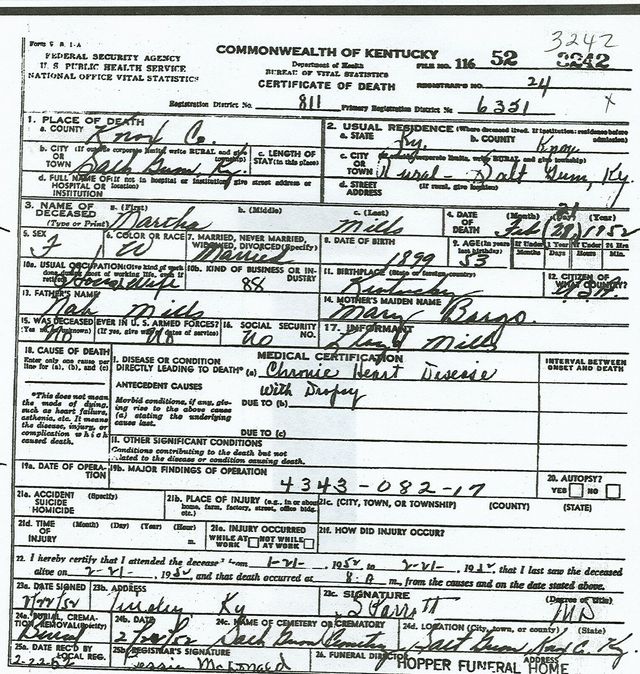 3242
Form V S 1-A
FEDERAL SECURITY AGENCY
U. S PUBLIC HEALTH SERVICE
NATIONAL OFFICE VITAL STATISTICS
COMMONWEALTH OF KENTUCKY
Department of Health
BUREAU OF VITAL STATISTICS
CERTIFICATE OF DEATH
FILE NO. 116 52 3242
REGISTRAR'S NO. 24
Registration District No. 811 Primary Registration District No 6351
1. PLACE OF DEATH
a. COUNTY Knox Co.
2. USUAL RESIDENCE (Where deceased lived. If institution: residence before admission)
a. STATE Ky. b. COUNTY Knox
b. CITY (If outside corporate limits, write RURAL and give township) OR TOWN Salt Gum, Ky.
c. LENGTH OF STAY (in this place)
c. CITY OR TOWN Rural - Salt Gum, Ky.
d. FULL NAME OF (If not in hospital or institution, give street address or location) HOSPITAL OR INSTITUTION
d. STREET ADDRESS (If rural, give location)
3. NAME OF DECEASED (Type or Print) a. (First) Martha b. (Middle) c. (Last) Mills
4. DATE OF DEATH (Month) (Day) (Year) Feb 21 1952
5. SEX F
6. COLOR OR RACE W
7. MARRIED, NEVER MARRIED, WIDOWED, DIVORCED (Specify) Married
8. DATE OF BIRTH 1899
9. AGE (In years last birthday) 53
If Under 1 Year Months Days If Under 24 Hrs Hours Min.
10a. USUAL OCCUPATION (Give kind of work done during most of working life, even if retired) Housewife
10b. KIND OF BUSINESS OR INDUSTRY 88
11. BIRTHPLACE (State or foreign country) Kentucky
12. CITIZEN OF WHAT COUNTRY? U.S.A.
13. FATHER'S NAME Mills
14. MOTHER'S MAIDEN NAME Mary Bargo
15. WAS DECEASED EVER IN U. S. ARMED FORCES? (Yes, no, or unknown) No (If yes, give war or dates of service) No
16. SOCIAL SECURITY NO. No
17. INFORMANT Lloyd Mills
18. CAUSE OF DEATH
Enter only one cause per line for (a), (b), and (c)
*This does not mean the mode of dying, such as heart failure, asthenia, etc. It means the disease, injury, or complication which caused death.
MEDICAL CERTIFICATION
INTERVAL BETWEEN ONSET AND DEATH
I. DISEASE OR CONDITION DIRECTLY LEADING TO DEATH* (a) Chronic Heart Disease
With Dropsy
ANTECEDENT CAUSES
Morbid conditions, if any, giving rise to the above cause (a) stating the underlying cause last.
DUE TO (b)
DUE TO (c)
II. OTHER SIGNIFICANT CONDITIONS
Conditions contributing to the death but not related to the disease or condition causing death.
19a. DATE OF OPERATION
19b. MAJOR FINDINGS OF OPERATION
4343-082-17
20. AUTOPSY?
YES NO
21a. ACCIDENT SUICIDE HOMICIDE (Specify)
21b. PLACE OF INJURY (e.g., in or about home, farm, factory, street, office bldg. etc.)
21c. (CITY, TOWN, OR TOWNSHIP) (COUNTY) (STATE)
21d. TIME OF INJURY (Month) (Day) (Year) (Hour) m.
21e. INJURY OCCURRED WHILE AT WORK NOT WHILE AT WORK
21f. HOW DID INJURY OCCUR?
22. I hereby certify that I attended the deceased from 1-21-, 1952 to 2-21-, 1952, that I last saw the deceased
alive on 2-21-, 1952, and that death occurred at 8:A m., from the causes and on the date stated above.
23a. DATE SIGNED 2/22/52
23b. ADDRESS Ky
23c. SIGNATURE S Parrott (Degree or title) MD
24a. BURIAL, CREMATION, REMOVAL (Specify) Burial
24b. DATE
24c. NAME OF CEMETERY OR CREMATORY Salt Gum Cemetery
24d. LOCATION (City, town, or county) (State) Salt Gum Knox C. Ky.
25a. DATE REC'D BY LOCAL REG. 2-22-52
25b. REGISTRAR'S SIGNATURE Jessie McDonald
26. FUNERAL DIRECTOR ADDRESS
HOPPER FUNERAL HOME